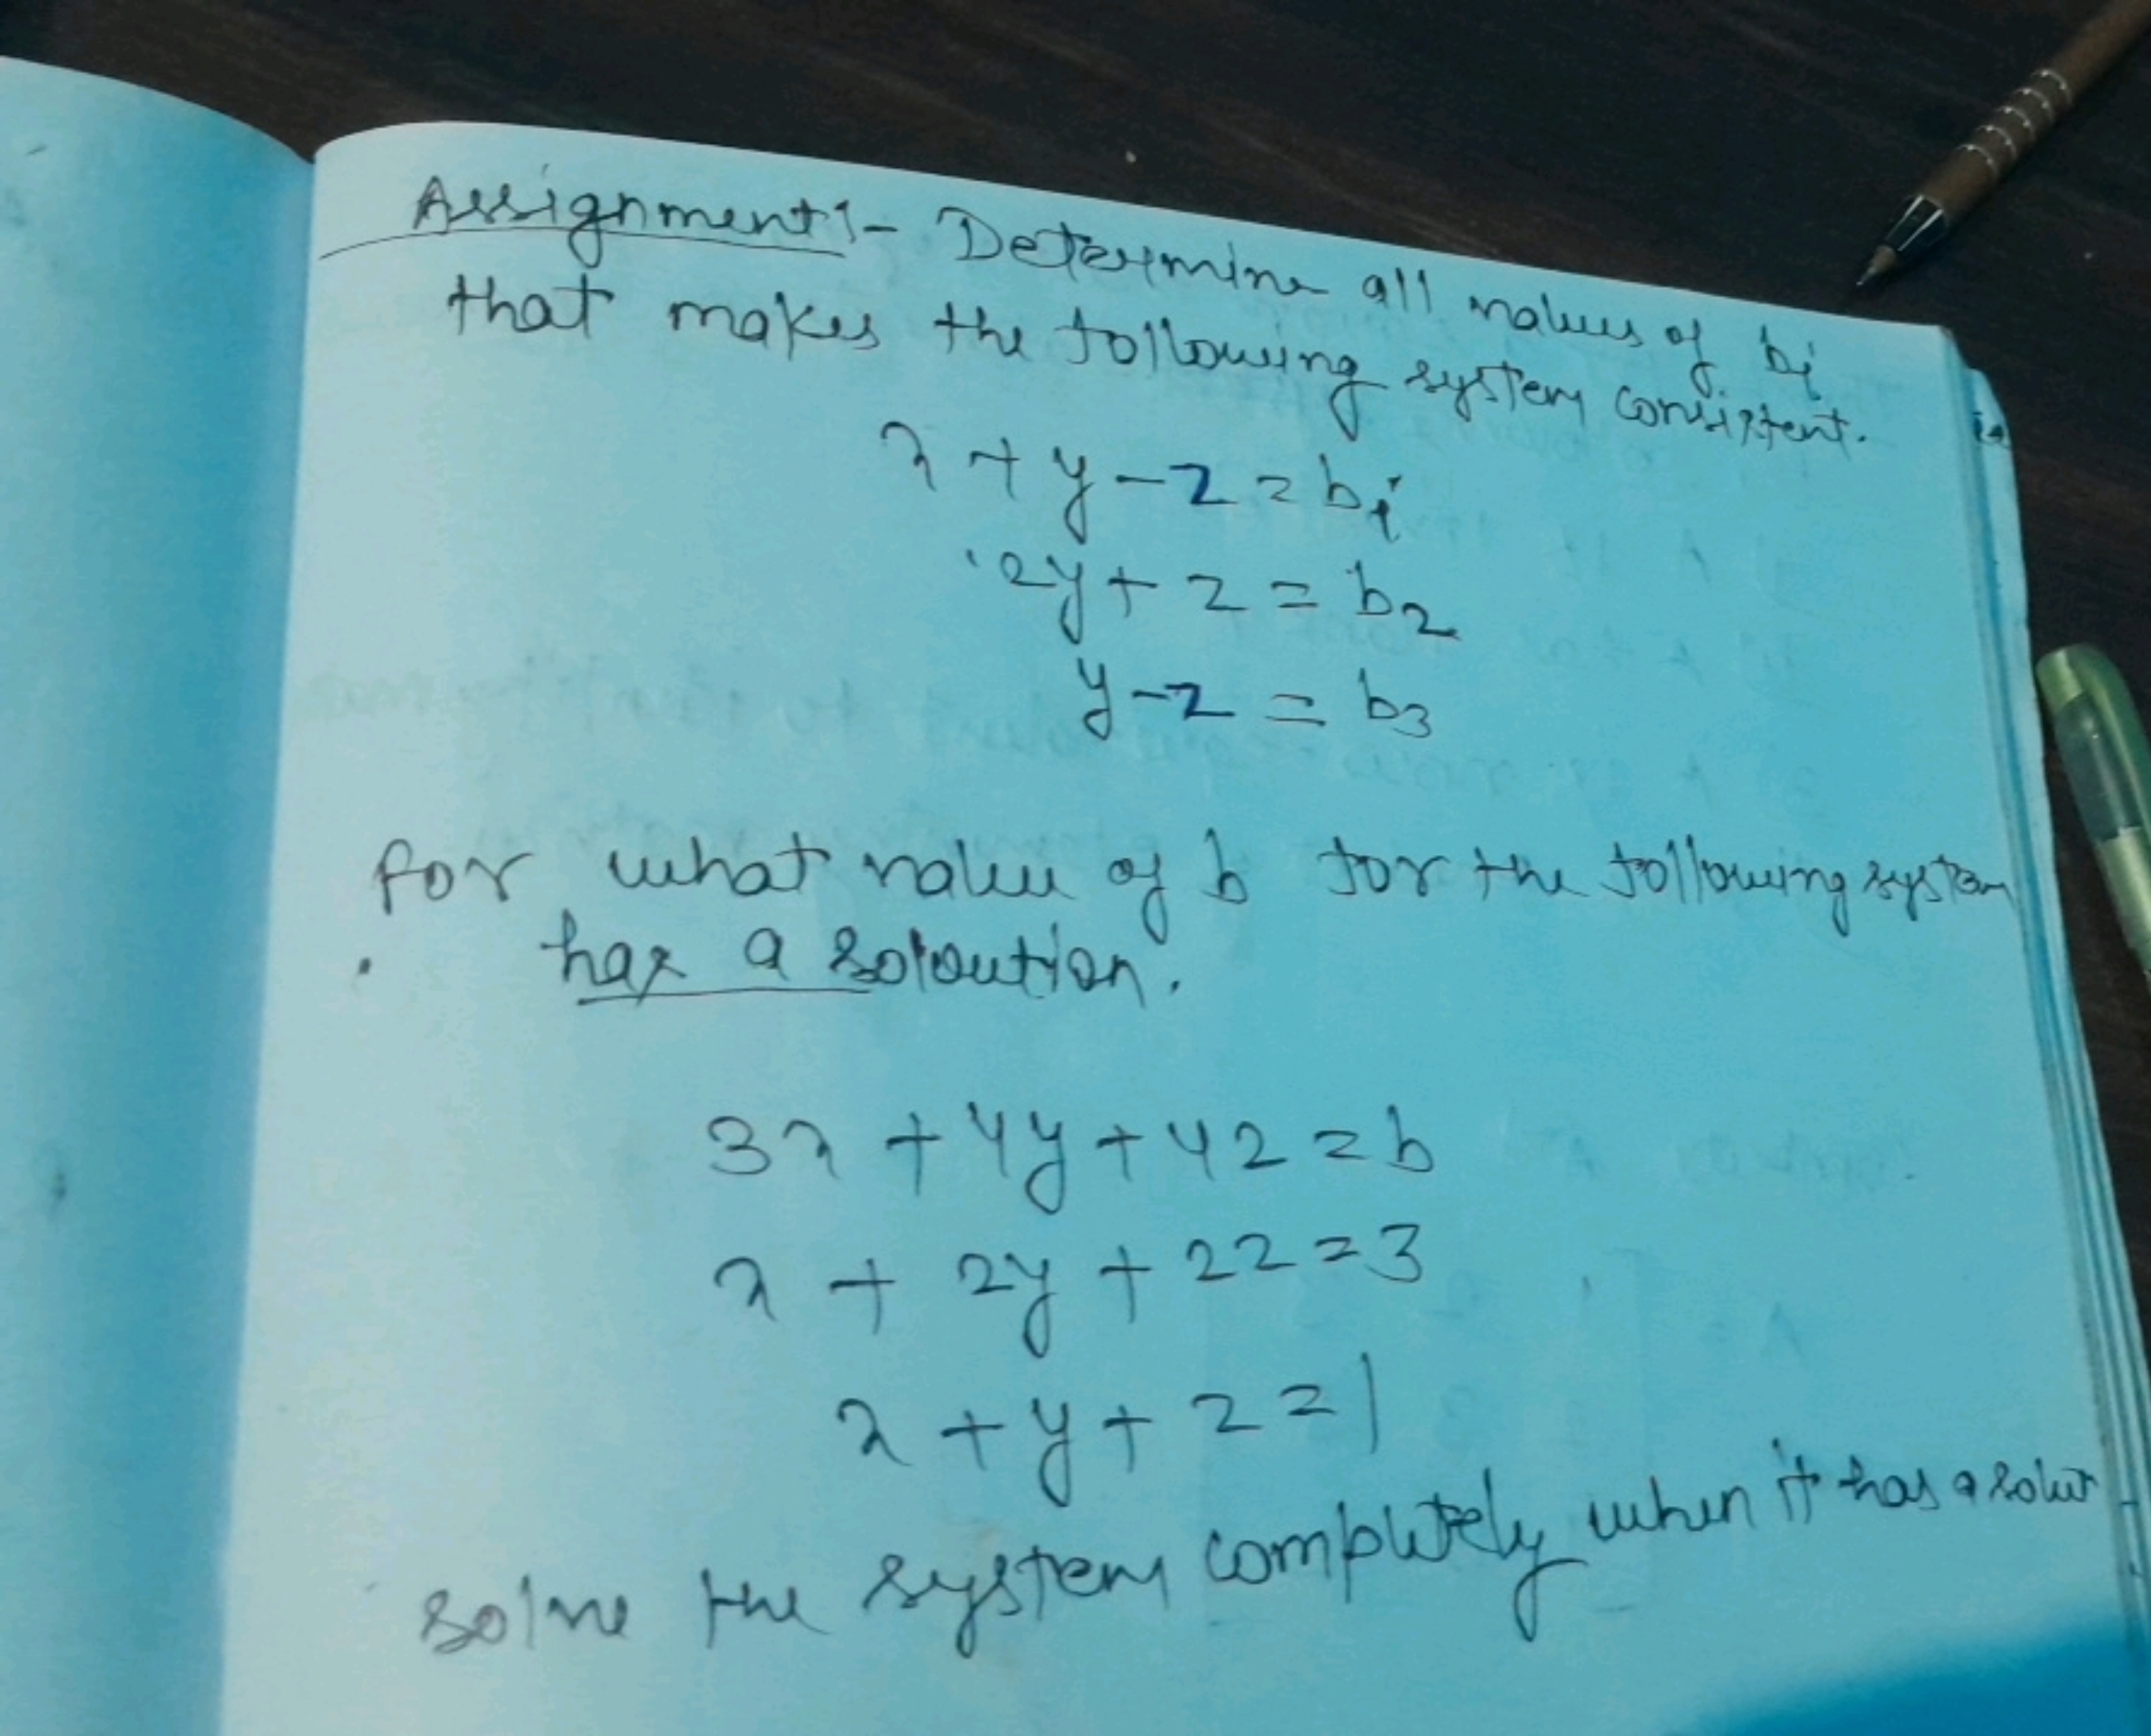 Assignment:- Determine all values of bi
that makes the following system consistent.
x + y - z = bi
2y + z = b2
y - z = b3
for what value of b for the following system
has a soloution.
3x + 4y + 4z = b
x + 2y + 2z = 3
x + y + z = 1
solve the system completely when it has a solut